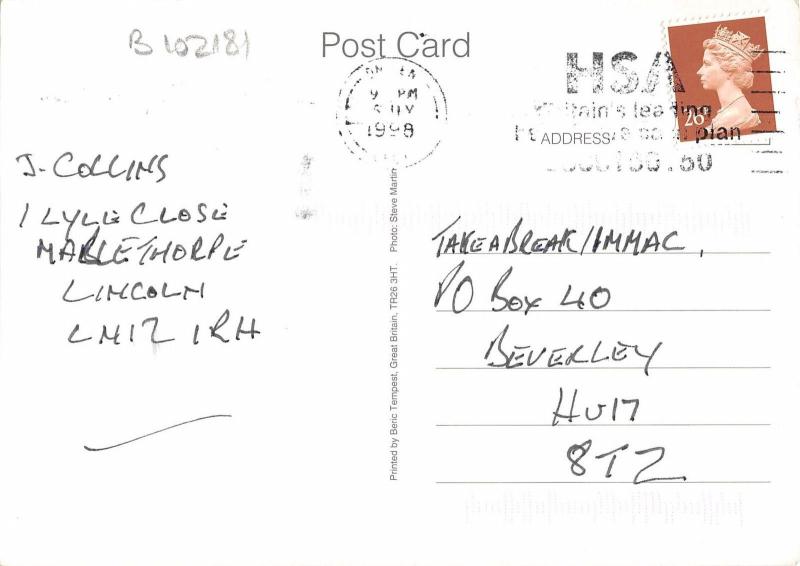 B 102181
Post Card
9 PM
1998
HSA
Britain's leading
plan
26
ADDRESS
J. COLLINS
1 LYLE CLOSE
MABLETHORPE
LINCOLN
LN12 1RH
TAKE A BREAK/IMMAC,
PO BOX 40
BEVERLEY
HU17
8TZ
Printed by Beric Tempest, Great Britain, TR26 3HT. Photo: Steve Martin